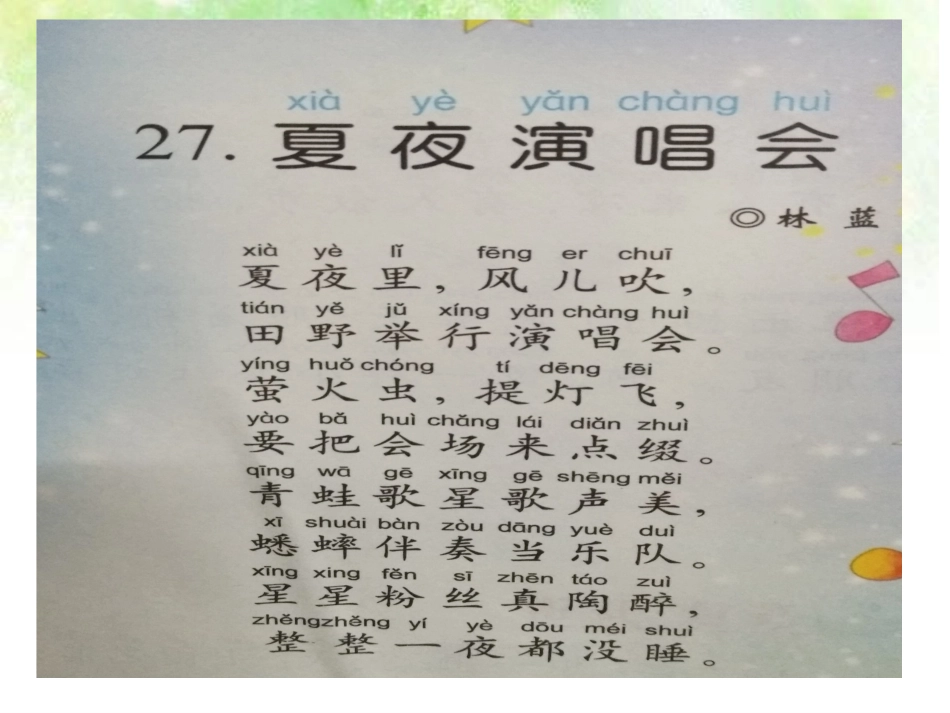 xià yè yǎn chàng huì
27. 夏夜演唱会
◎林 蓝
xià yè lǐ fēng er chuī
夏夜里，风儿吹，
tián yě jǔ xíng yǎn chàng huì
田野举行演唱会。
yíng huǒ chóng tí dēng fēi
萤火虫，提灯飞，
yào bǎ huì chǎng lái diǎn zhuì
要把会场来点缀。
qīng wā gē xīng gē shēng měi
青蛙歌星歌声美，
xī shuài bàn zòu dāng yuè duì
蟋蟀伴奏当乐队。
xīng xing fěn sī zhēn táo zuì
星星粉丝真陶醉，
zhěngzhěng yí yè dōu méi shuì
整整一夜都没睡。